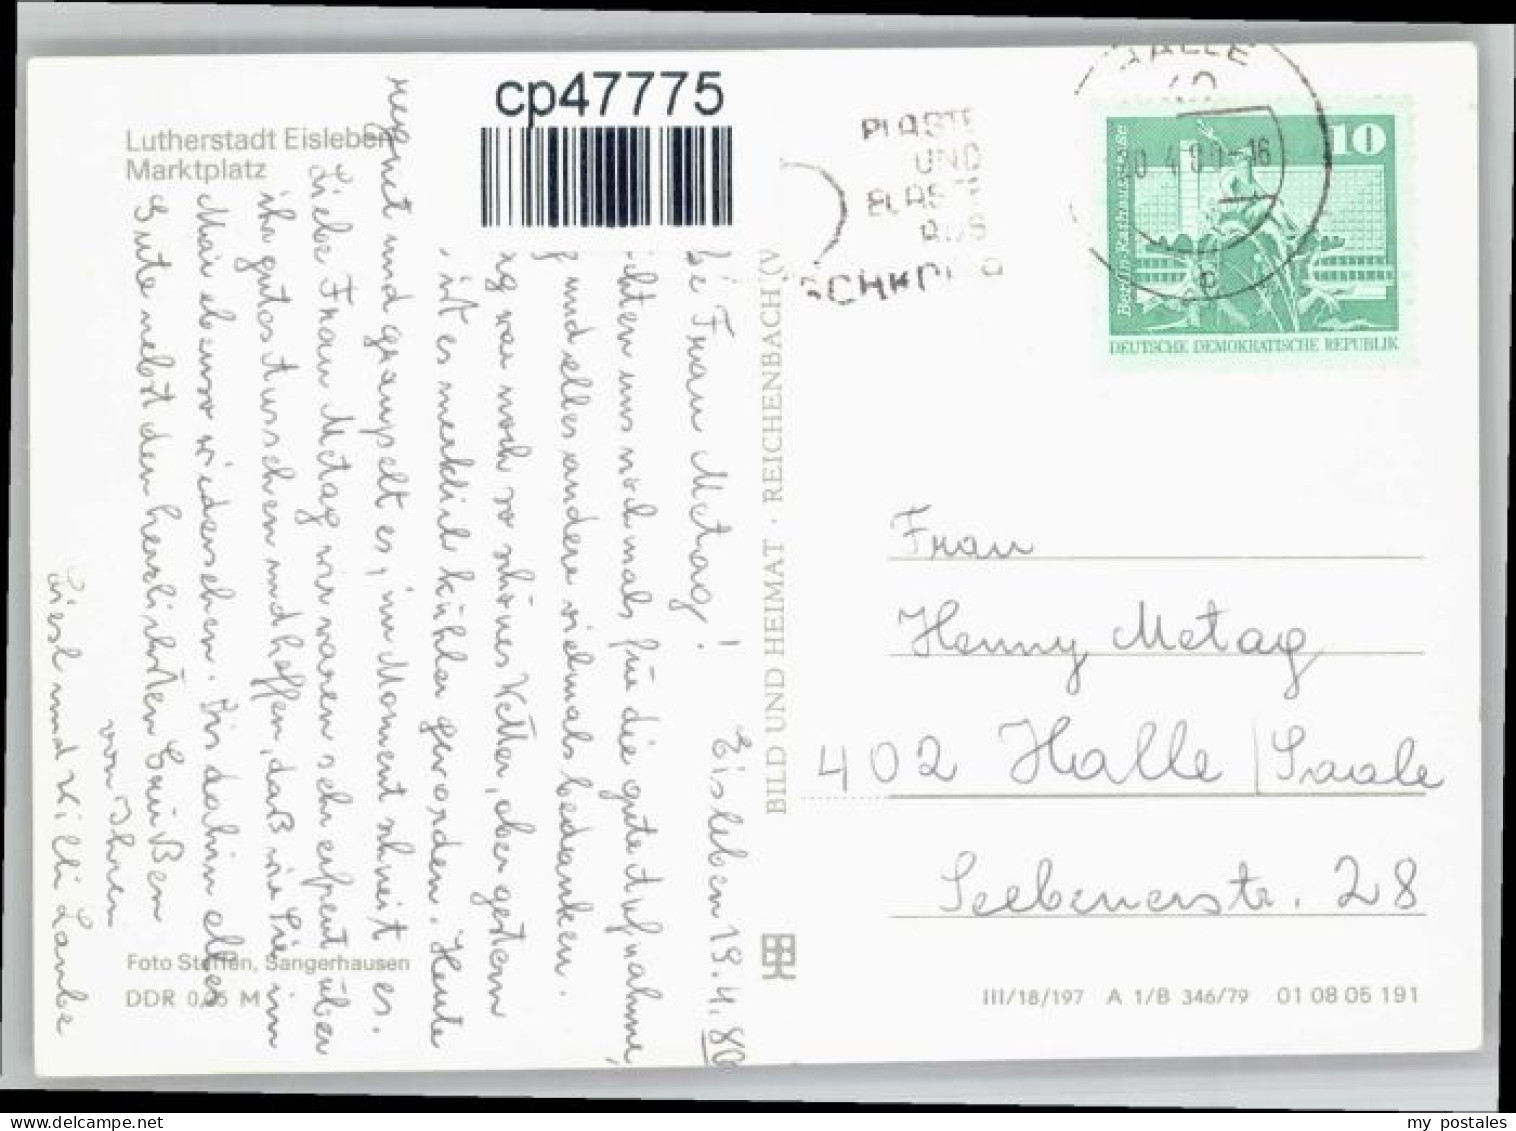 cp47775
Lutherstadt Eisleben
Marktplatz
Eisleben 19.4.80
be Frau Metag!
chten uns nochmals für die gute Aufnahme,
und alles andere vielmals bedanken.
ng war noch so schönes Wetter, aber gestern
ist es merklich kühler geworden. Heute
regnet und graupelt es, im Moment schneit es.
Liebe Frau Metag wir waren sehr erfreut über
ihr gutes Aussehen und hoffen, daß wir Sie im
Mai ebenso wiedersehen. Bis dahin alles
Gute nebst den herzlichsten Grüßen
von Ihren
Liesl und Willi Laube
Foto Steffen, Sangerhausen
DDR 0,25 M
BILD UND HEIMAT · REICHENBACH (V
PLASTE
UND
ELASTE
AUS
SCHKOPAU
HALLE
4.80-16
10
Berlin, Rathausstraße
DEUTSCHE DEMOKRATISCHE REPUBLIK
Frau
Henny Metag
402 Halle/Saale
Seebenerstr. 28
III/18/197 A 1/B 346/79 01 08 05 191
my postales